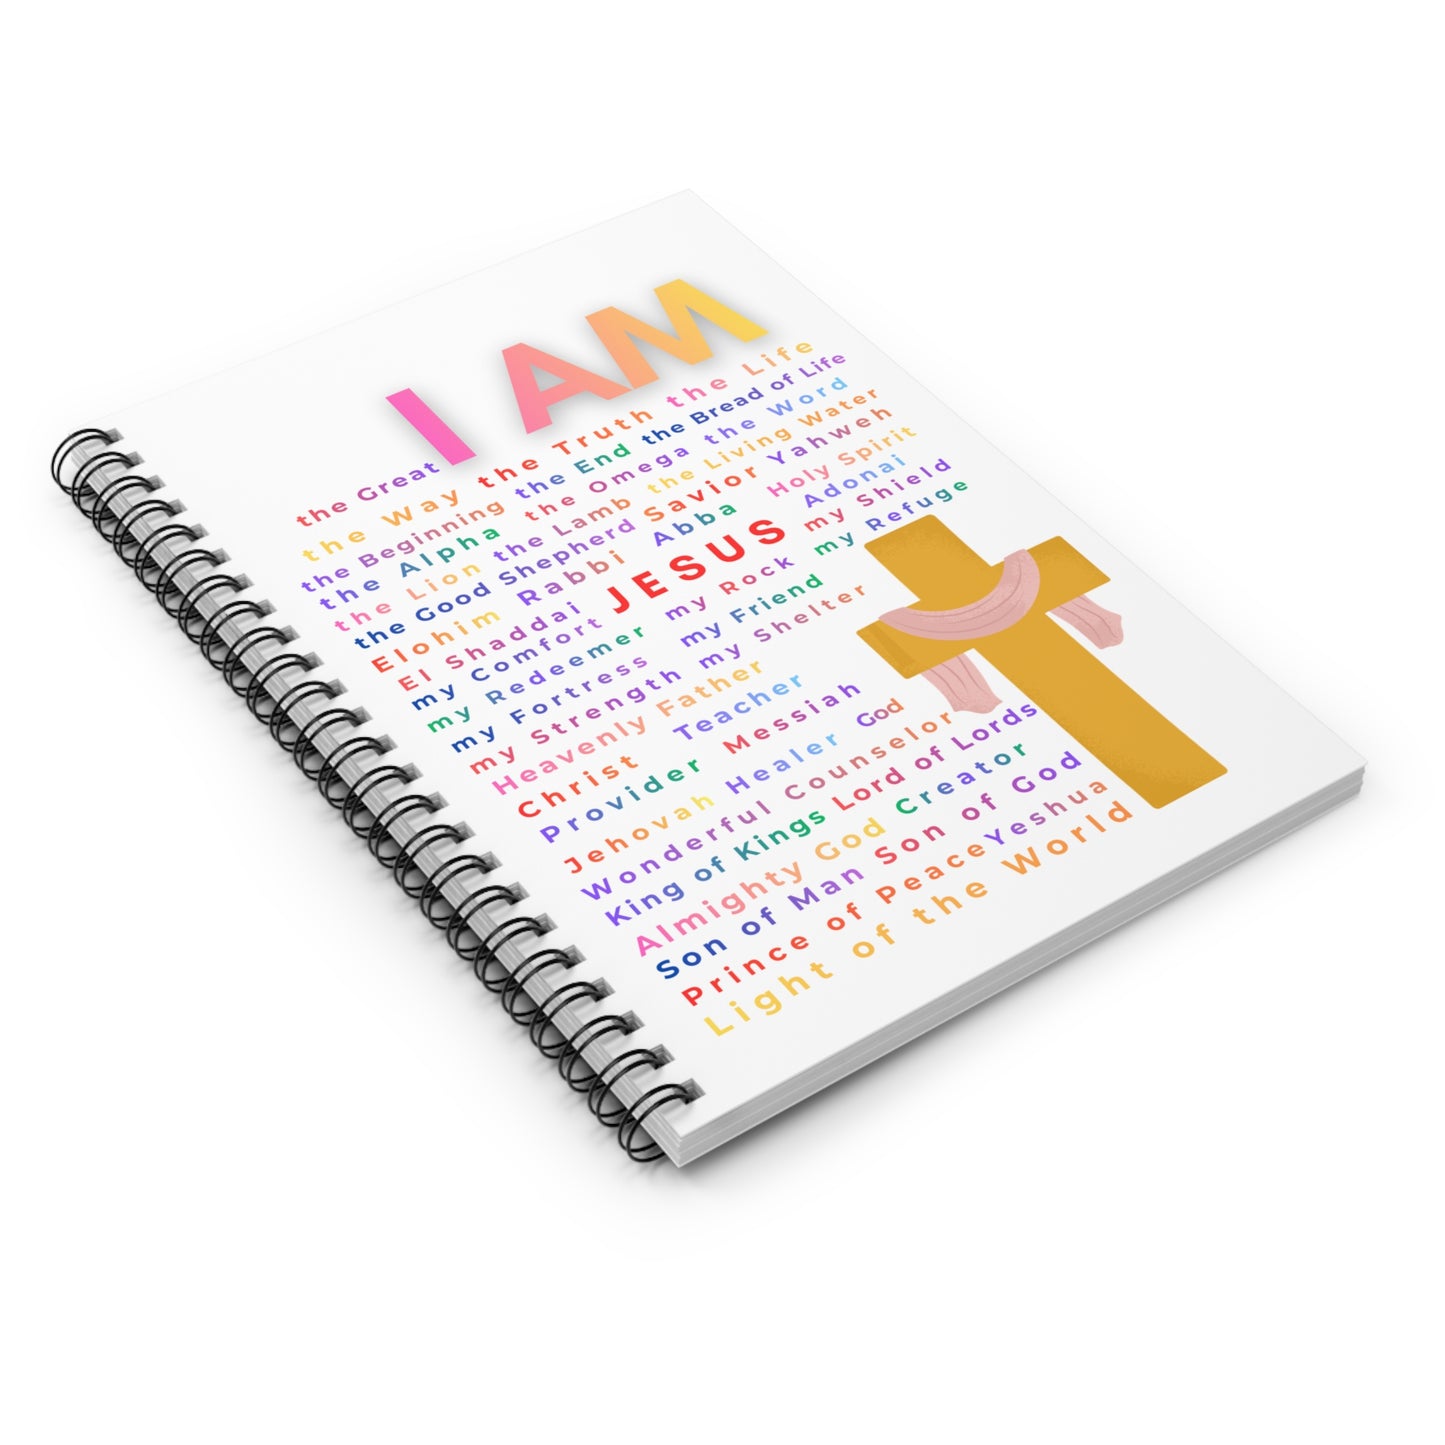 the Great I AM
the Way the Truth the Life
the Beginning the End the Bread of Life
the Alpha the Omega the Word
the Lion the Lamb the Living Water
the Good Shepherd Savior Yahweh
Elohim Rabbi Abba Holy Spirit
El Shaddai JESUS Adonai
my Comfort my Shield
my Redeemer my Rock my Refuge
my Fortress my Friend
my Strength my Shelter
Heavenly Father
Christ Teacher
Provider Messiah
Jehovah Healer God
Wonderful Counselor
King of Kings Lord of Lords
Almighty God Creator
Son of Man Son of God
Prince of Peace Yeshua
Light of the World